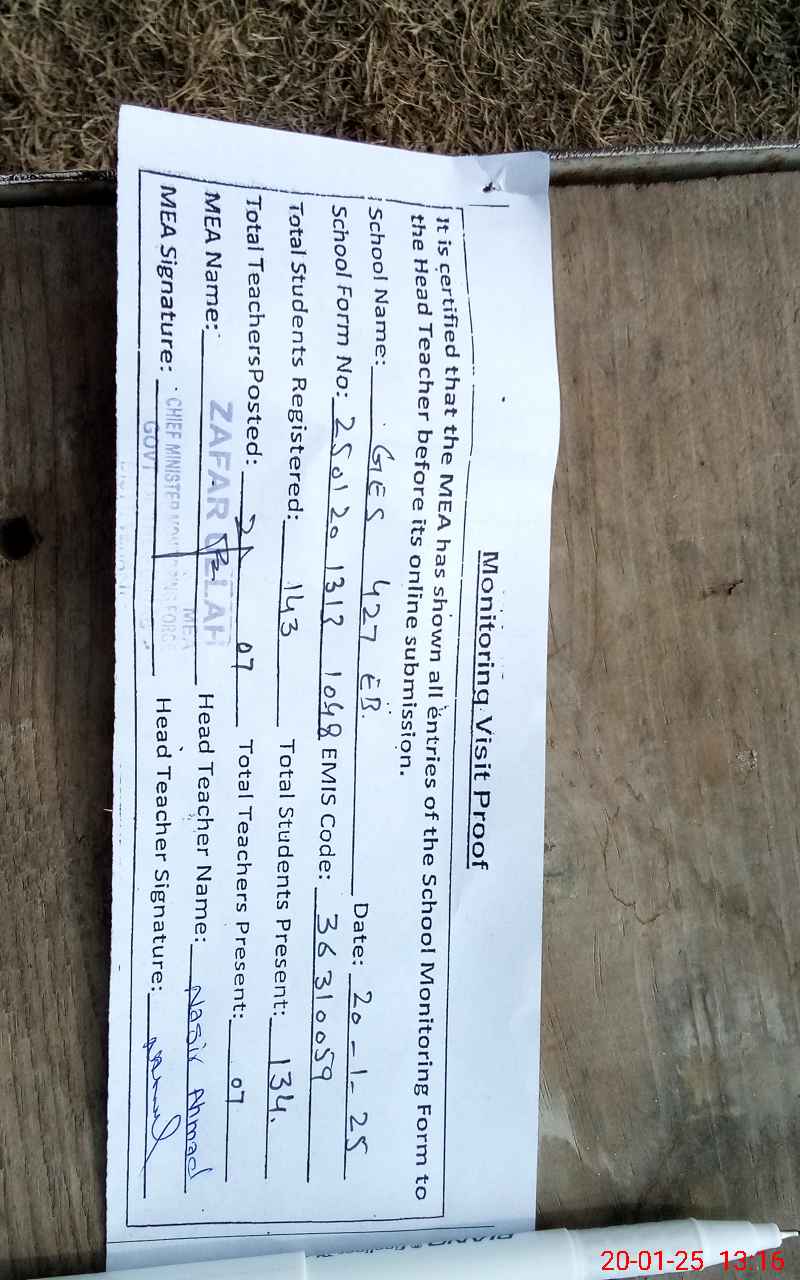 Monitoring Visit Proof
It is certified that the MEA has shown all entries of the School Monitoring Form to
the Head Teacher before its online submission.
School Name: GES 427 EB. Date: 20-1-25
School Form No: 250120 1313 1048 EMIS Code: 36310059
Total Students Registered: 143 Total Students Present: 134.
Total TeachersPosted: 07 Total Teachers Present: 07
MEA Name: ZAFAR ULLAH Head Teacher Name: Nasir Ahmad
MEA
MEA Signature: Head Teacher Signature:
CHIEF MINISTER MONITORING FORCE
GOVT
PIANO
20-01-25 13:16